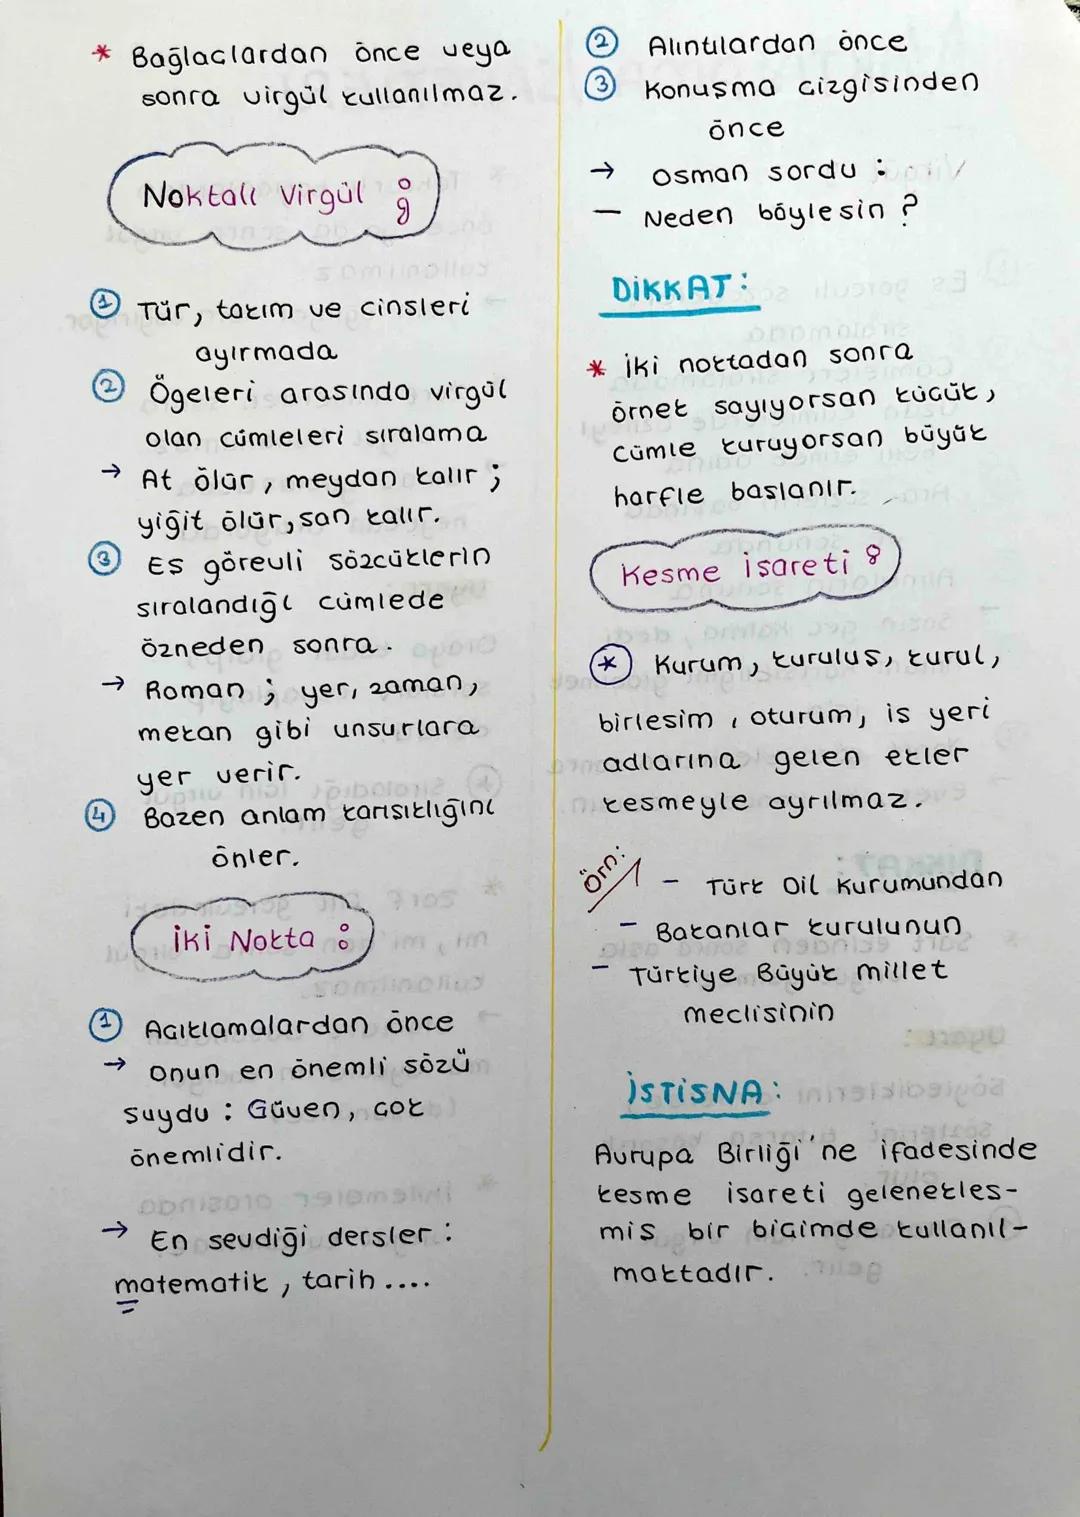 * Bağlaclardan önce veya
sonra virgül kullanılmaz.
Noktalı Virgül ;
1 Tür, takım ve cinsleri
ayırmada
2 Ögeleri arasında virgül
olan cümleleri sıralama
→ At ölür, meydan kalır ;
yiğit ölür, san kalır.
3 Es görevli sözcüklerin
sıralandığı cümlede
özneden sonra.
→ Roman ; yer, zaman,
mekan gibi unsurlara
yer verir.
4 Bazen anlam karısıklığını
önler.
İki Nokta :
1 Acıklamalardan önce
→ onun en önemli sözü
suydu : Güven, cok
önemlidir.
→ En sevdiği dersler :
matematik, tarih ....
2 Alıntılardan önce
3 Konusma cizgisinden
önce
→ Osman sordu :
— Neden böylesin ?
DİKKAT:
* İki noktadan sonra
örnek sayıyorsan kücük,
cümle kuruyorsan büyük
harfle baslanır.
Kesme isareti :
* Kurum, kurulus, kurul,
birlesim, oturum, is yeri
adlarına gelen ekler
kesmeyle ayrılmaz.
Örn:
- Türk Dil Kurumundan
- Bakanlar kurulunun
- Türkiye Büyük millet
meclisinin
İSTİSNA:
Avrupa Birliği'ne ifadesinde
kesme isareti gelenekles-
mis bir bicimde kullanıl-
maktadır.